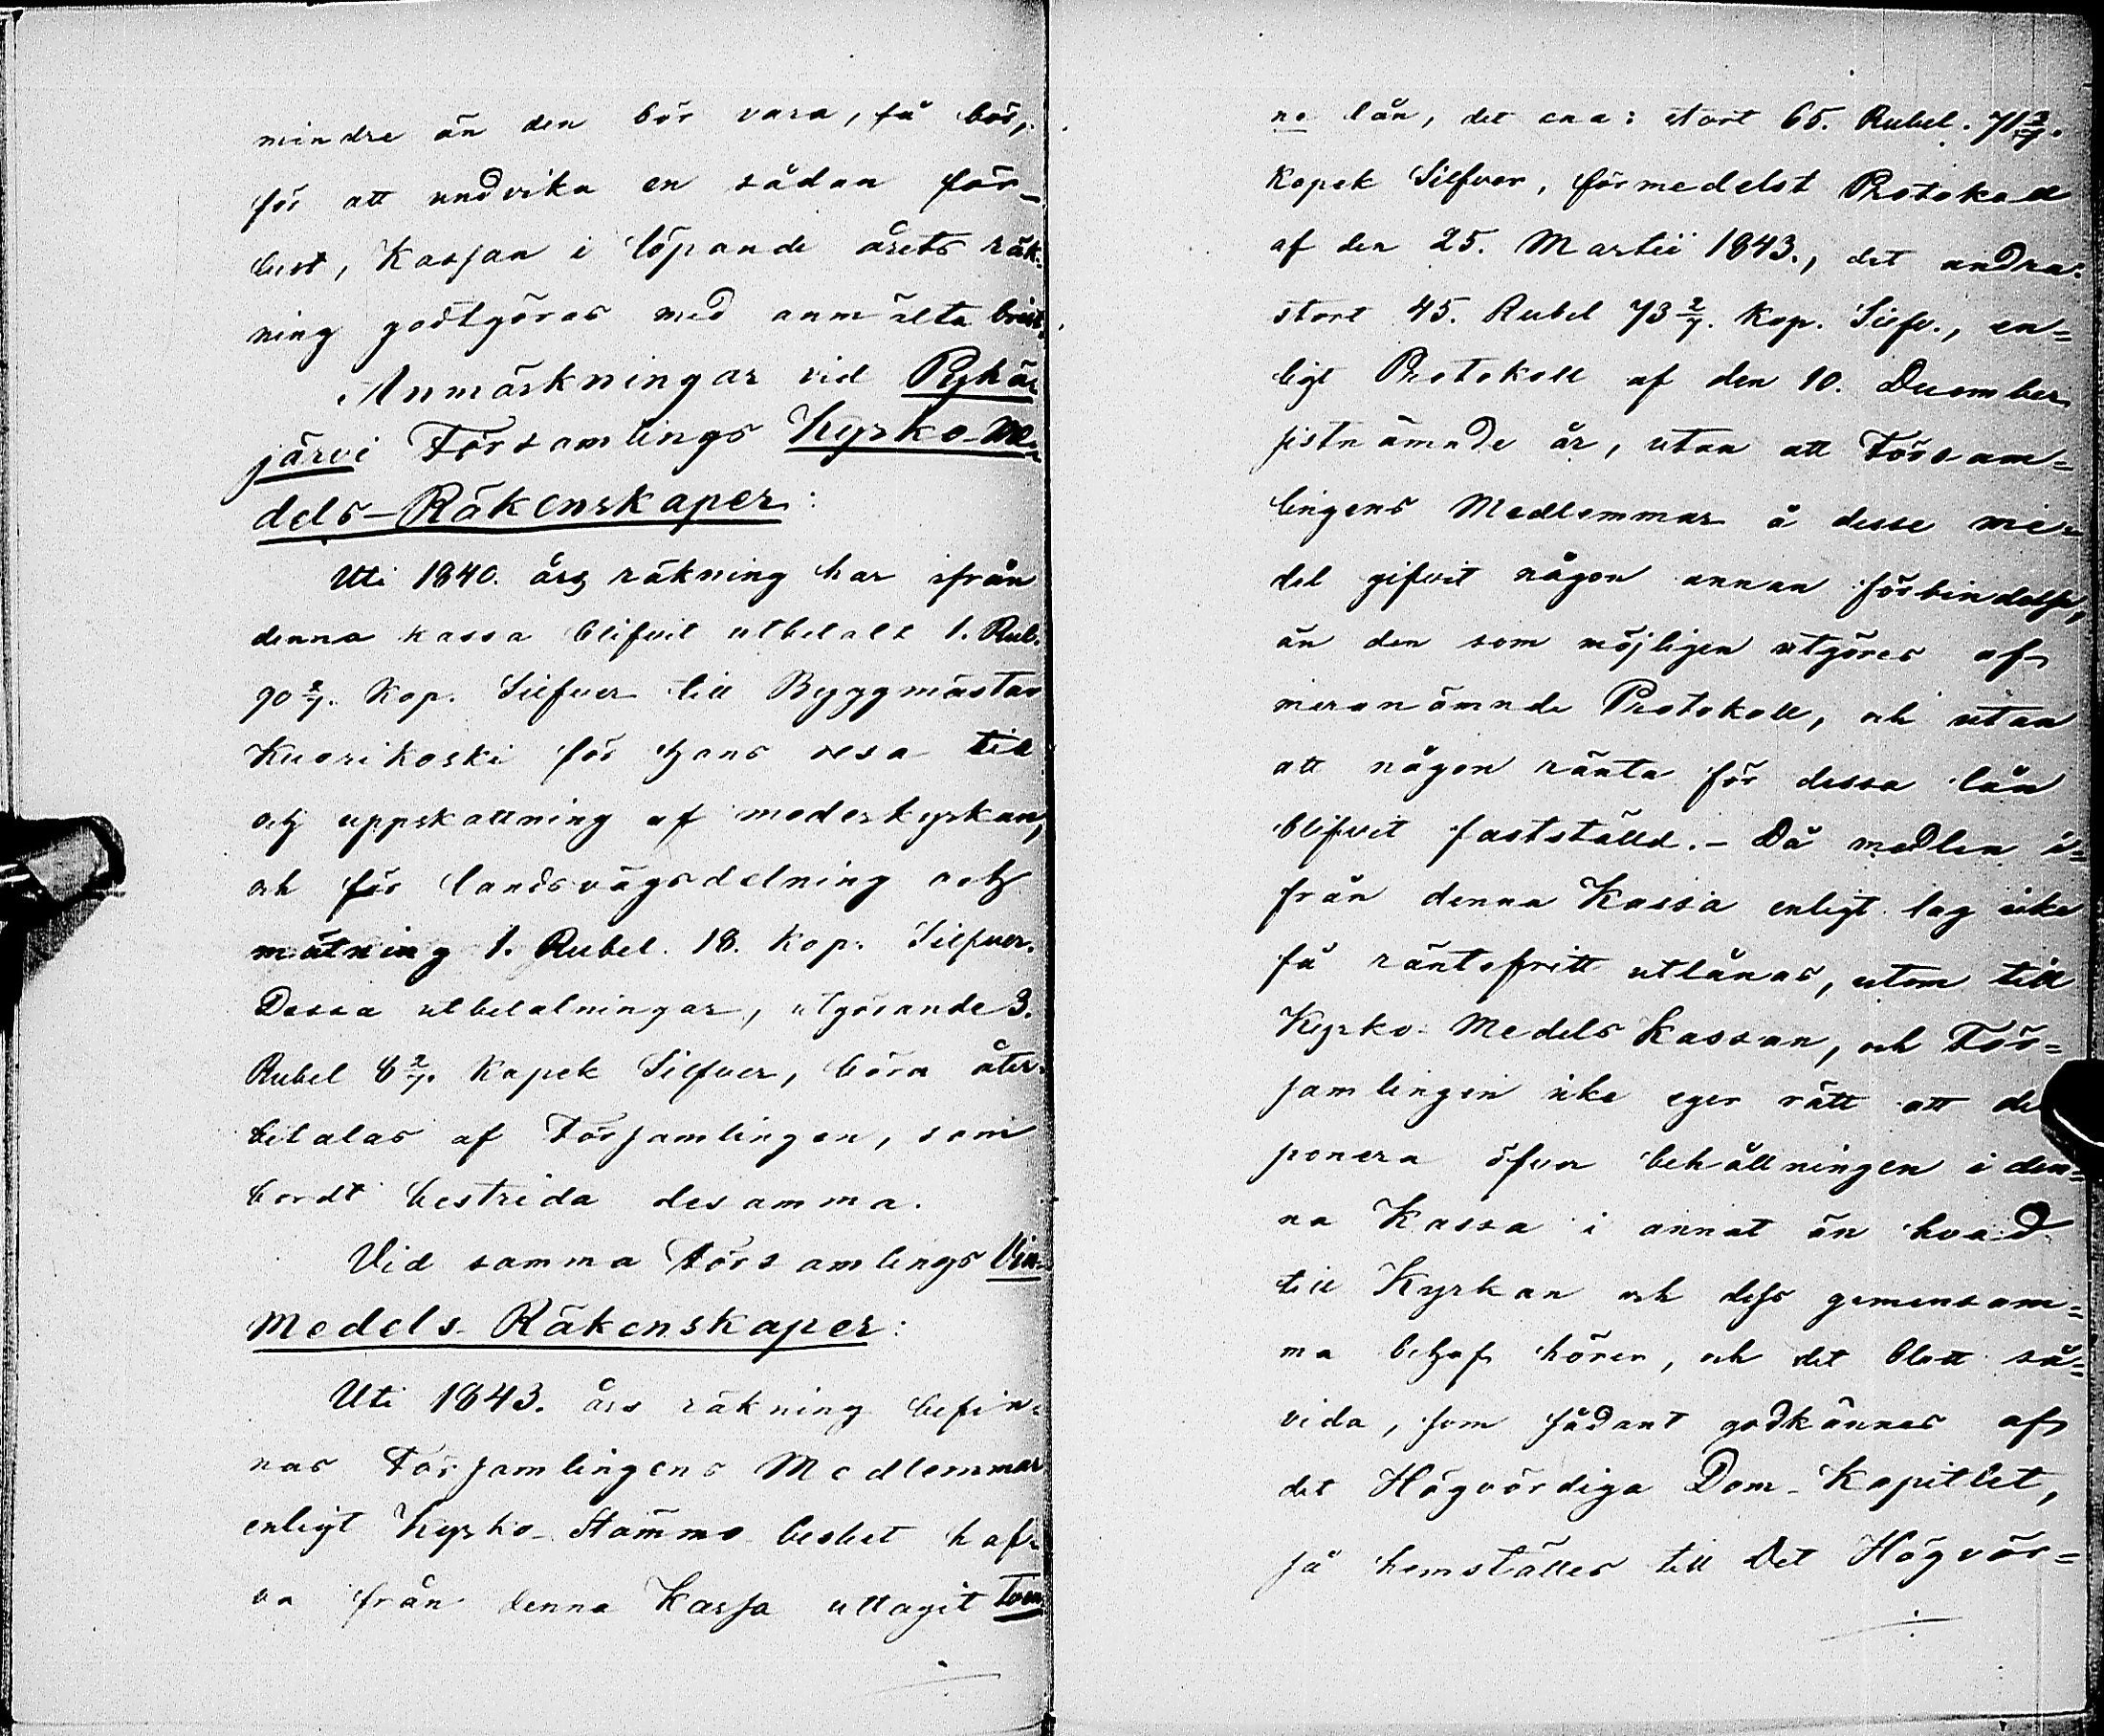 mindre än den bör vara, så bör,
för att undvika en sådan för-
lust, Kassan i löpande årets räk-
ning godtgöras med anmälta brist.
Anmärkningar vid Pyhä-
järvi Församlings Kyrko-Me-
dels-Räkenskaper:
Uti 1840. års räkning har ifrån
denna kassa blifvit utbetalt 1. Rub.
90 2/7. Kop. Silfver till Byggmästar
Kuorikoski för hans resa till
och uppskattning af moderkyrkan,
och för landsvägsdelning och
mätning 1. Rubel. 18. Kop. Silfver.
Dessa utbetalningar, utgörande 3.
Rubel 8 2/7. Kopek Silfver, böra åter-
betalas af Församlingen, som
bordt bestrida desamma.
Vid samma Församlings Vin-
Medels-Räkenskaper:
Uti 1843. års räkning befin-
nas Församlingens Medlemmar
enligt Kyrko-Stämmo beslut haf-
va från denna Kassa uttagit tven-
ne lån, det ena: stort 65. Rubel. 71 3/7.
Kopek Silfver, förmedelst Protokoll
af den 25. Martii 1843., det andra:
stort 45. Rubel 73 2/7. Kop. Silfv., en=
ligt Protokoll af den 10. December
sistnämnde år, utan att Försam=
lingens Medlemmar å desse me-
del gifvit någon annan förbindelse,
än den som möjligen utgöres af
meranämnde Protokoll, och utan
att någon ränta för dessa lån
blifvit fastställd. - Då medlen i=
från denna Kassa enligt lag icke
få räntefritt utlånas, utom till
Kyrko-Medels Kassan, och För=
samlingen icke eger rätt att dis
ponera öfver behållningen i den=
na Kassa i annat än hvad
till Kyrkan och dess gemensam=
ma behof hörer, och det blott så=
vida, som sådant godkännes af
det Högvördiga Dom-Kapitlet,
så hemställes till Det Högvör=